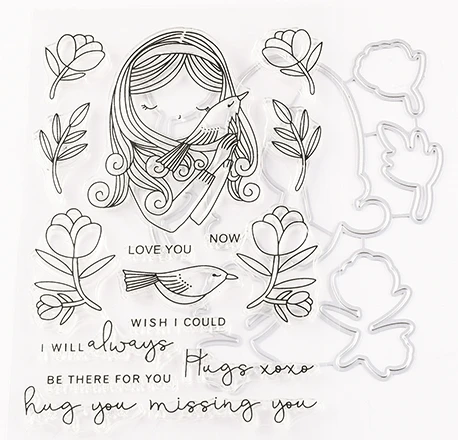 LOVE YOU NOW
WISH I COULD
I WILL always
Hugs xoxo
BE THERE FOR YOU
hug you missing you